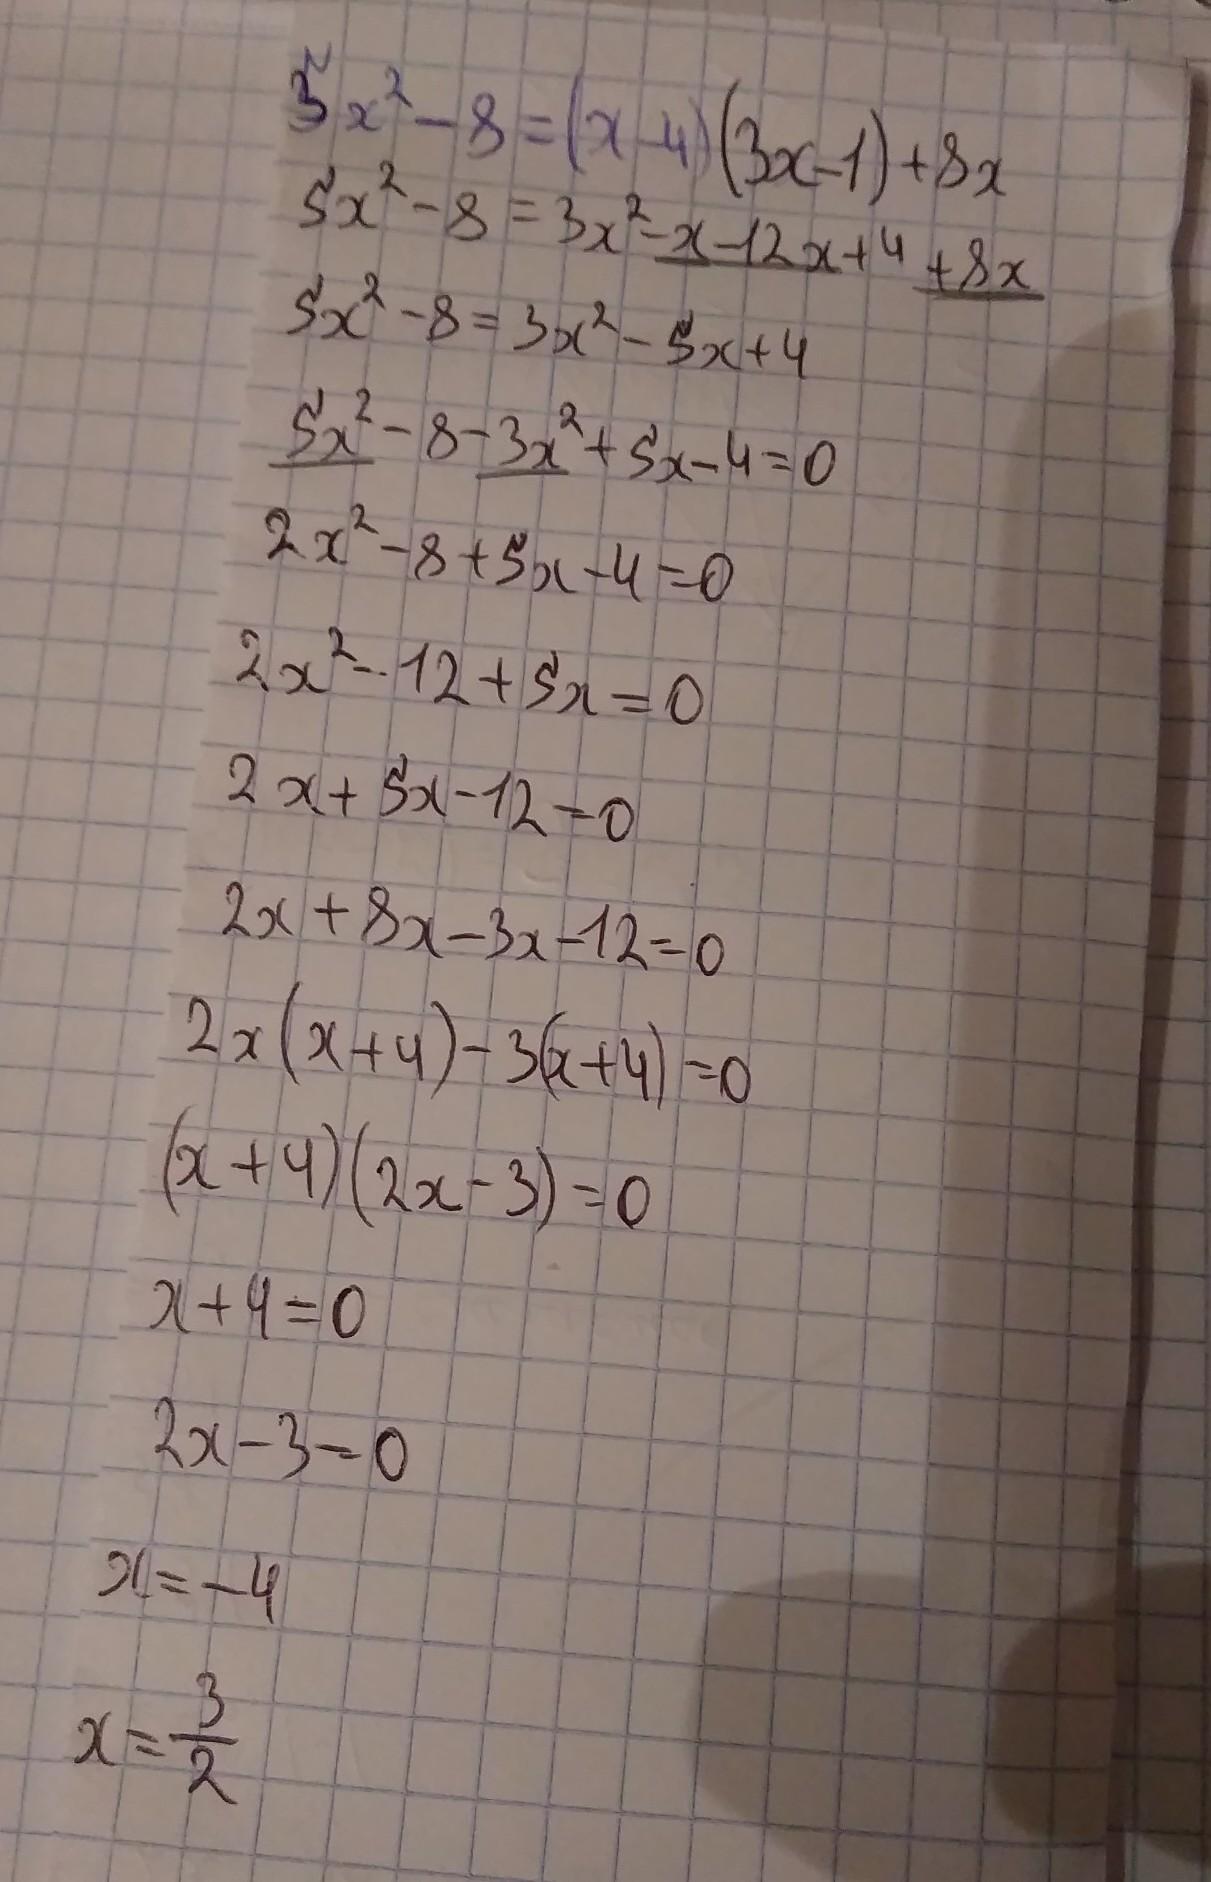 5x² - 8 = (x - 4)(3x - 1) + 8x
5x² - 8 = 3x² - x - 12x + 4 + 8x
5x² - 8 = 3x² - 5x + 4
5x² - 8 - 3x² + 5x - 4 = 0
2x² - 8 + 5x - 4 = 0
2x² - 12 + 5x = 0
2x + 5x - 12 = 0
2x + 8x - 3x - 12 = 0
2x(x + 4) - 3(x + 4) = 0
(x + 4)(2x - 3) = 0
x + 4 = 0
2x - 3 = 0
x = -4
x = 3/2